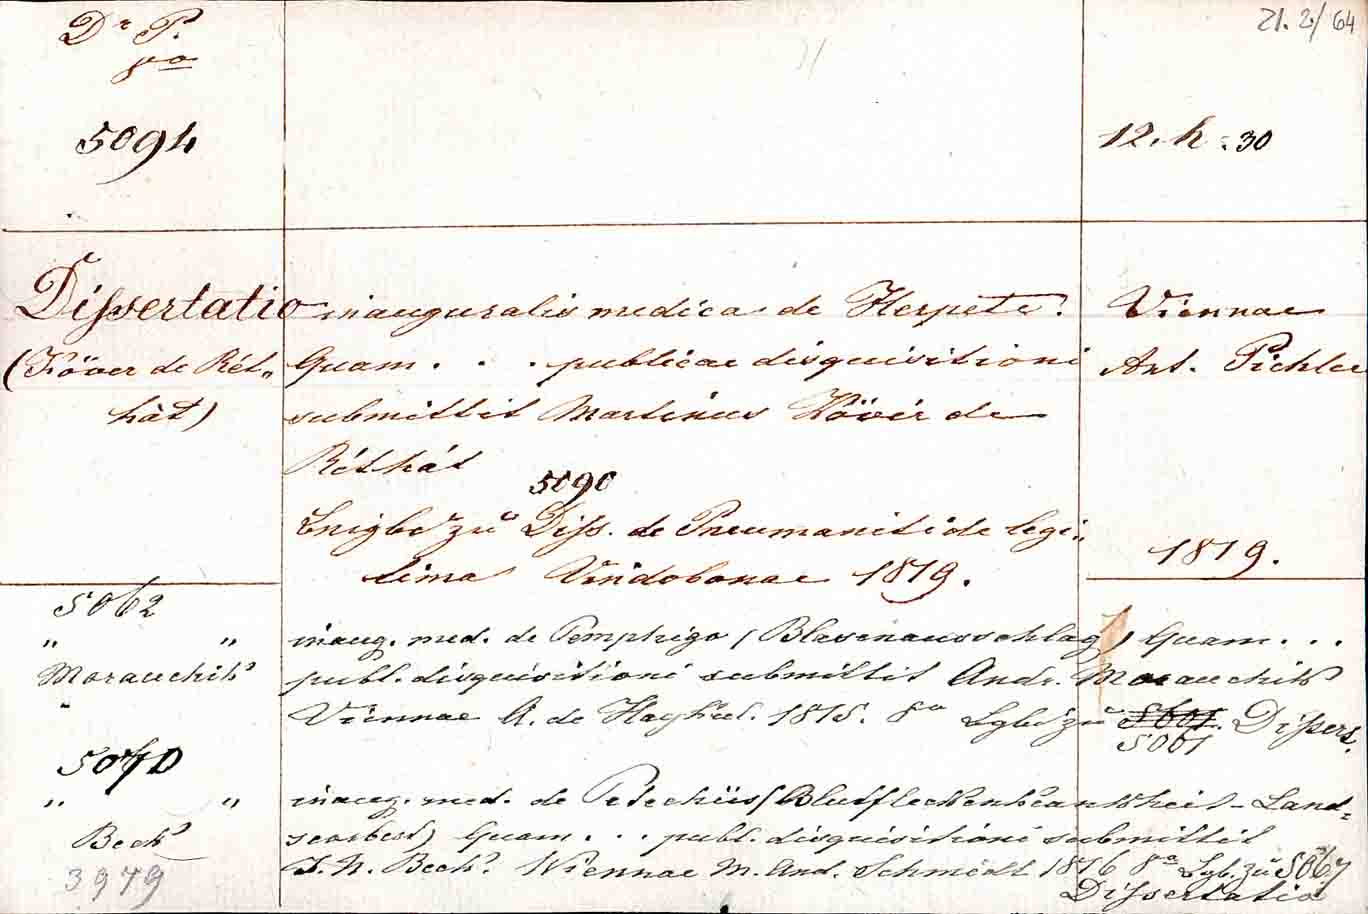 Dr P. 21. 2/64
8vo
5094 12. h. 30
Dissertatio inauguralis medica de Herpete. Viennae
(Köver de Rét- Quam . . . publicae disquisitioni Ant. Pichler
hát) submittit Martinus Kövér de
Réthát
5090
zu Diss. de Pneumonitide legi-
tima Vindobonae 1819. 1819.
5062
" " inaug. med. de Pemphigo (Blasenausschlag) Quam . . .
Morauchik publ. disquisitioni submittit Andr. Morauchik
Viennae A. de Haykul. 1815. 8o Lgb. zu 5601. Dissert.
5001
5070
" " inaug. med. de Petechiis (Blutfleckenkrankheit - Land-
Bech scorbest) Quam . . . publ. disquisitioni submittit
3979 J. N. Bech. Viennae M. And. Schmidt 1816 8o Lgb. zu 5067
Dissertatio